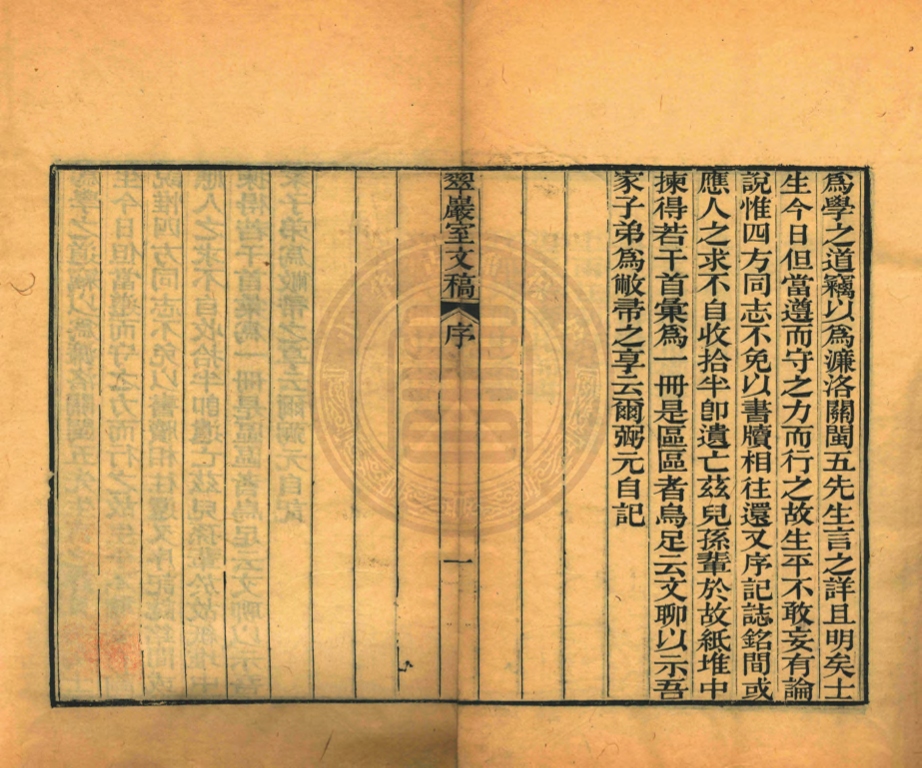 爲學之道竊以爲濂洛關閩五先生言之詳且明矣士
生今日但當遵而守之力而行之故生平不敢妄有論
說惟四方同志不免以書牘相往還又序記誌銘間或
應人之求不自收拾半卽遺亡茲兒孫輩於故紙堆中
揀得若干首彙爲一冊是區區者烏足云文聊以示吾
家子弟爲敝帚之享云爾弼元自記
翠巖室文稿
序
一